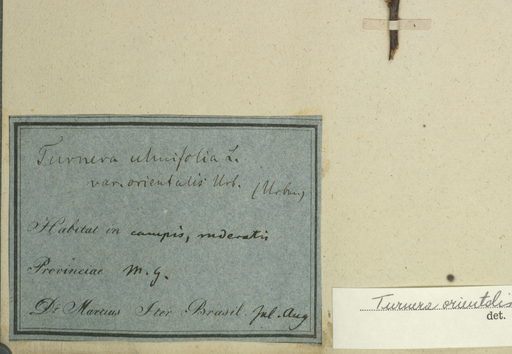 Turnera ulmifolia L.
var. orientalis Urb.
(Urban)
Habitat in campis, ruderatis
Provinciae M. G.
Dr Martius Iter Brasil. Jul. Aug
Turnera orientalis
det.